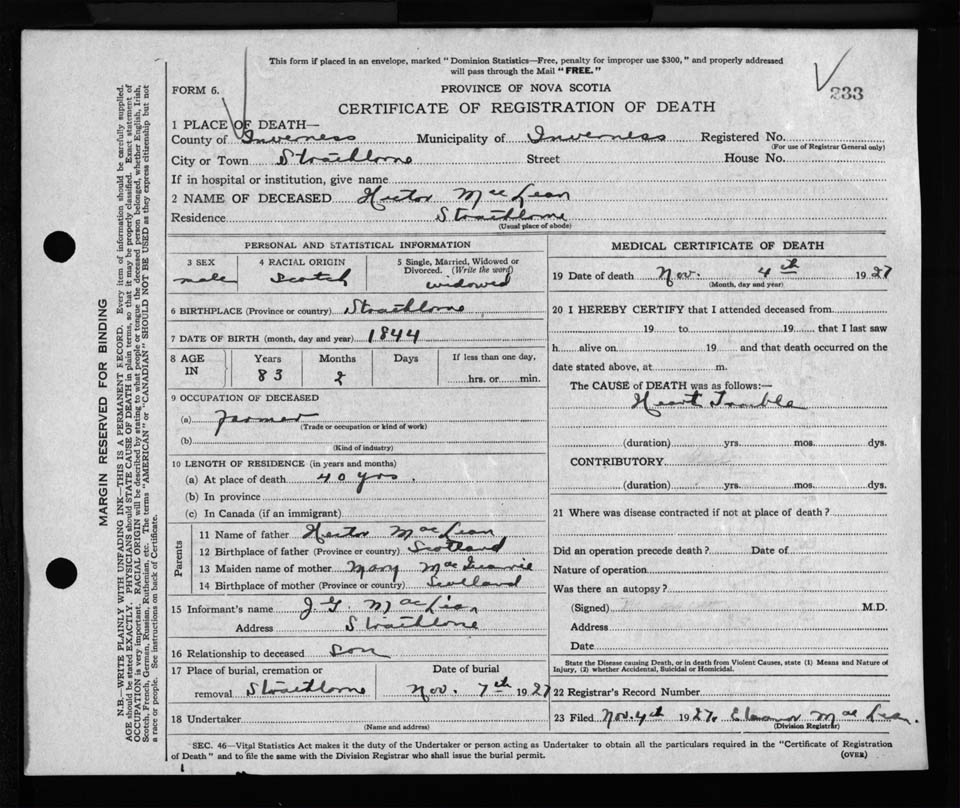 This form if placed in an envelope, marked "Dominion Statistics—Free, penalty for improper use $300," and properly addressed
will pass through the Mail "FREE."
FORM 6.
PROVINCE OF NOVA SCOTIA
233
CERTIFICATE OF REGISTRATION OF DEATH
1 PLACE OF DEATH—
County of Inverness Municipality of Inverness Registered No.
(For use of Registrar General only)
City or Town Strathlorne Street House No.
If in hospital or institution, give name
2 NAME OF DECEASED Hector MacLean
Residence Strathlorne
(Usual place of abode)
PERSONAL AND STATISTICAL INFORMATION
3 SEX 4 RACIAL ORIGIN 5 Single, Married, Widowed or
Divorced. (Write the word)
male Scotch widowed
6 BIRTHPLACE (Province or country) Strathlorne
7 DATE OF BIRTH (month, day and year) 1844
8 AGE IN Years Months Days If less than one day,
83 2 hrs. or min.
9 OCCUPATION OF DECEASED
(a) Farmer
(Trade or occupation or kind of work)
(b)
(Kind of industry)
10 LENGTH OF RESIDENCE (in years and months)
(a) At place of death 40 yrs.
(b) In province
(c) In Canada (if an immigrant)
Parents
11 Name of father Hector MacLean
12 Birthplace of father (Province or country) Scotland
13 Maiden name of mother Mary
14 Birthplace of mother (Province or country) Scotland
15 Informant's name J.G. MacLean
Address Strathlorne
16 Relationship to deceased son
17 Place of burial, cremation or Date of burial
removal Strathlorne Nov. 7th 1927
18 Undertaker
(Name and address)
MEDICAL CERTIFICATE OF DEATH
19 Date of death Nov. 4th 1927
(Month, day and year)
20 I HEREBY CERTIFY that I attended deceased from
19 to 19 , that I last saw
h alive on 19 and that death occurred on the
date stated above, at m.
The CAUSE of DEATH was as follows:—
Heart Trouble
(duration) yrs. mos. dys.
CONTRIBUTORY
(duration) yrs. mos. dys.
21 Where was disease contracted if not at place of death?
Did an operation precede death? Date of
Nature of operation
Was there an autopsy?
(Signed) M.D.
Address
Date
State the Disease causing Death, or in death from Violent Causes, state (1) Means and Nature of
Injury, (2) whether Accidental, Suicidal or Homicidal.
22 Registrar's Record Number
23 Filed Nov. 4th 1927 Eleanor MacLean.
(Division Registrar)
SEC. 46—Vital Statistics Act makes it the duty of the Undertaker or person acting as Undertaker to obtain all the particulars required in the "Certificate of Registration
of Death" and to file the same with the Division Registrar who shall issue the burial permit. (OVER)
MARGIN RESERVED FOR BINDING
N.B.—WRITE PLAINLY WITH UNFADING INK—THIS IS A PERMANENT RECORD. Every item of information should be carefully supplied.
AGE should be stated EXACTLY. PHYSICIANS should STATE CAUSE OF DEATH in plain terms, so that it may be properly classified. Exact statement of
OCCUPATION is very important. RACIAL ORIGIN will be described by stating to what people or tongue the deceased person belonged, whether English, Irish,
Scotch, French, German, Russian, Ruthenian, etc. The terms "AMERICAN" or "CANADIAN" SHOULD NOT BE USED as they express citizenship but not
a race or people. See instructions on back of Certificate.